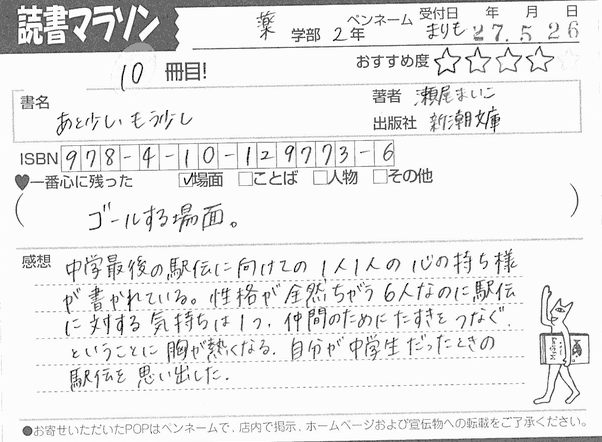 読書マラソン
薬 学部 2年 ペンネーム まりも 受付日 27年 5月 26日
10 冊目!
おすすめ度 ☆☆☆☆☆
書名 あと少し、もう少し
著者 瀬尾まいこ
出版社 新潮文庫
ISBN 978-4-10-129773-6
♥一番心に残った ☑場面 □ことば □人物 □その他
(ゴールする場面。)
感想
中学最後の駅伝に向けての1人1人の心の持ち様
が書かれている。性格が全然ちがう6人なのに駅伝
に対する気持ちは1つ。仲間のためにたすきをつなぐ、
ということに胸が熱くなる。自分が中学生だったときの
駅伝を思い出した。
●お寄せいただいたPOPはペンネームで、店内で掲示、ホームページおよび宣伝物への転載をご了承ください。